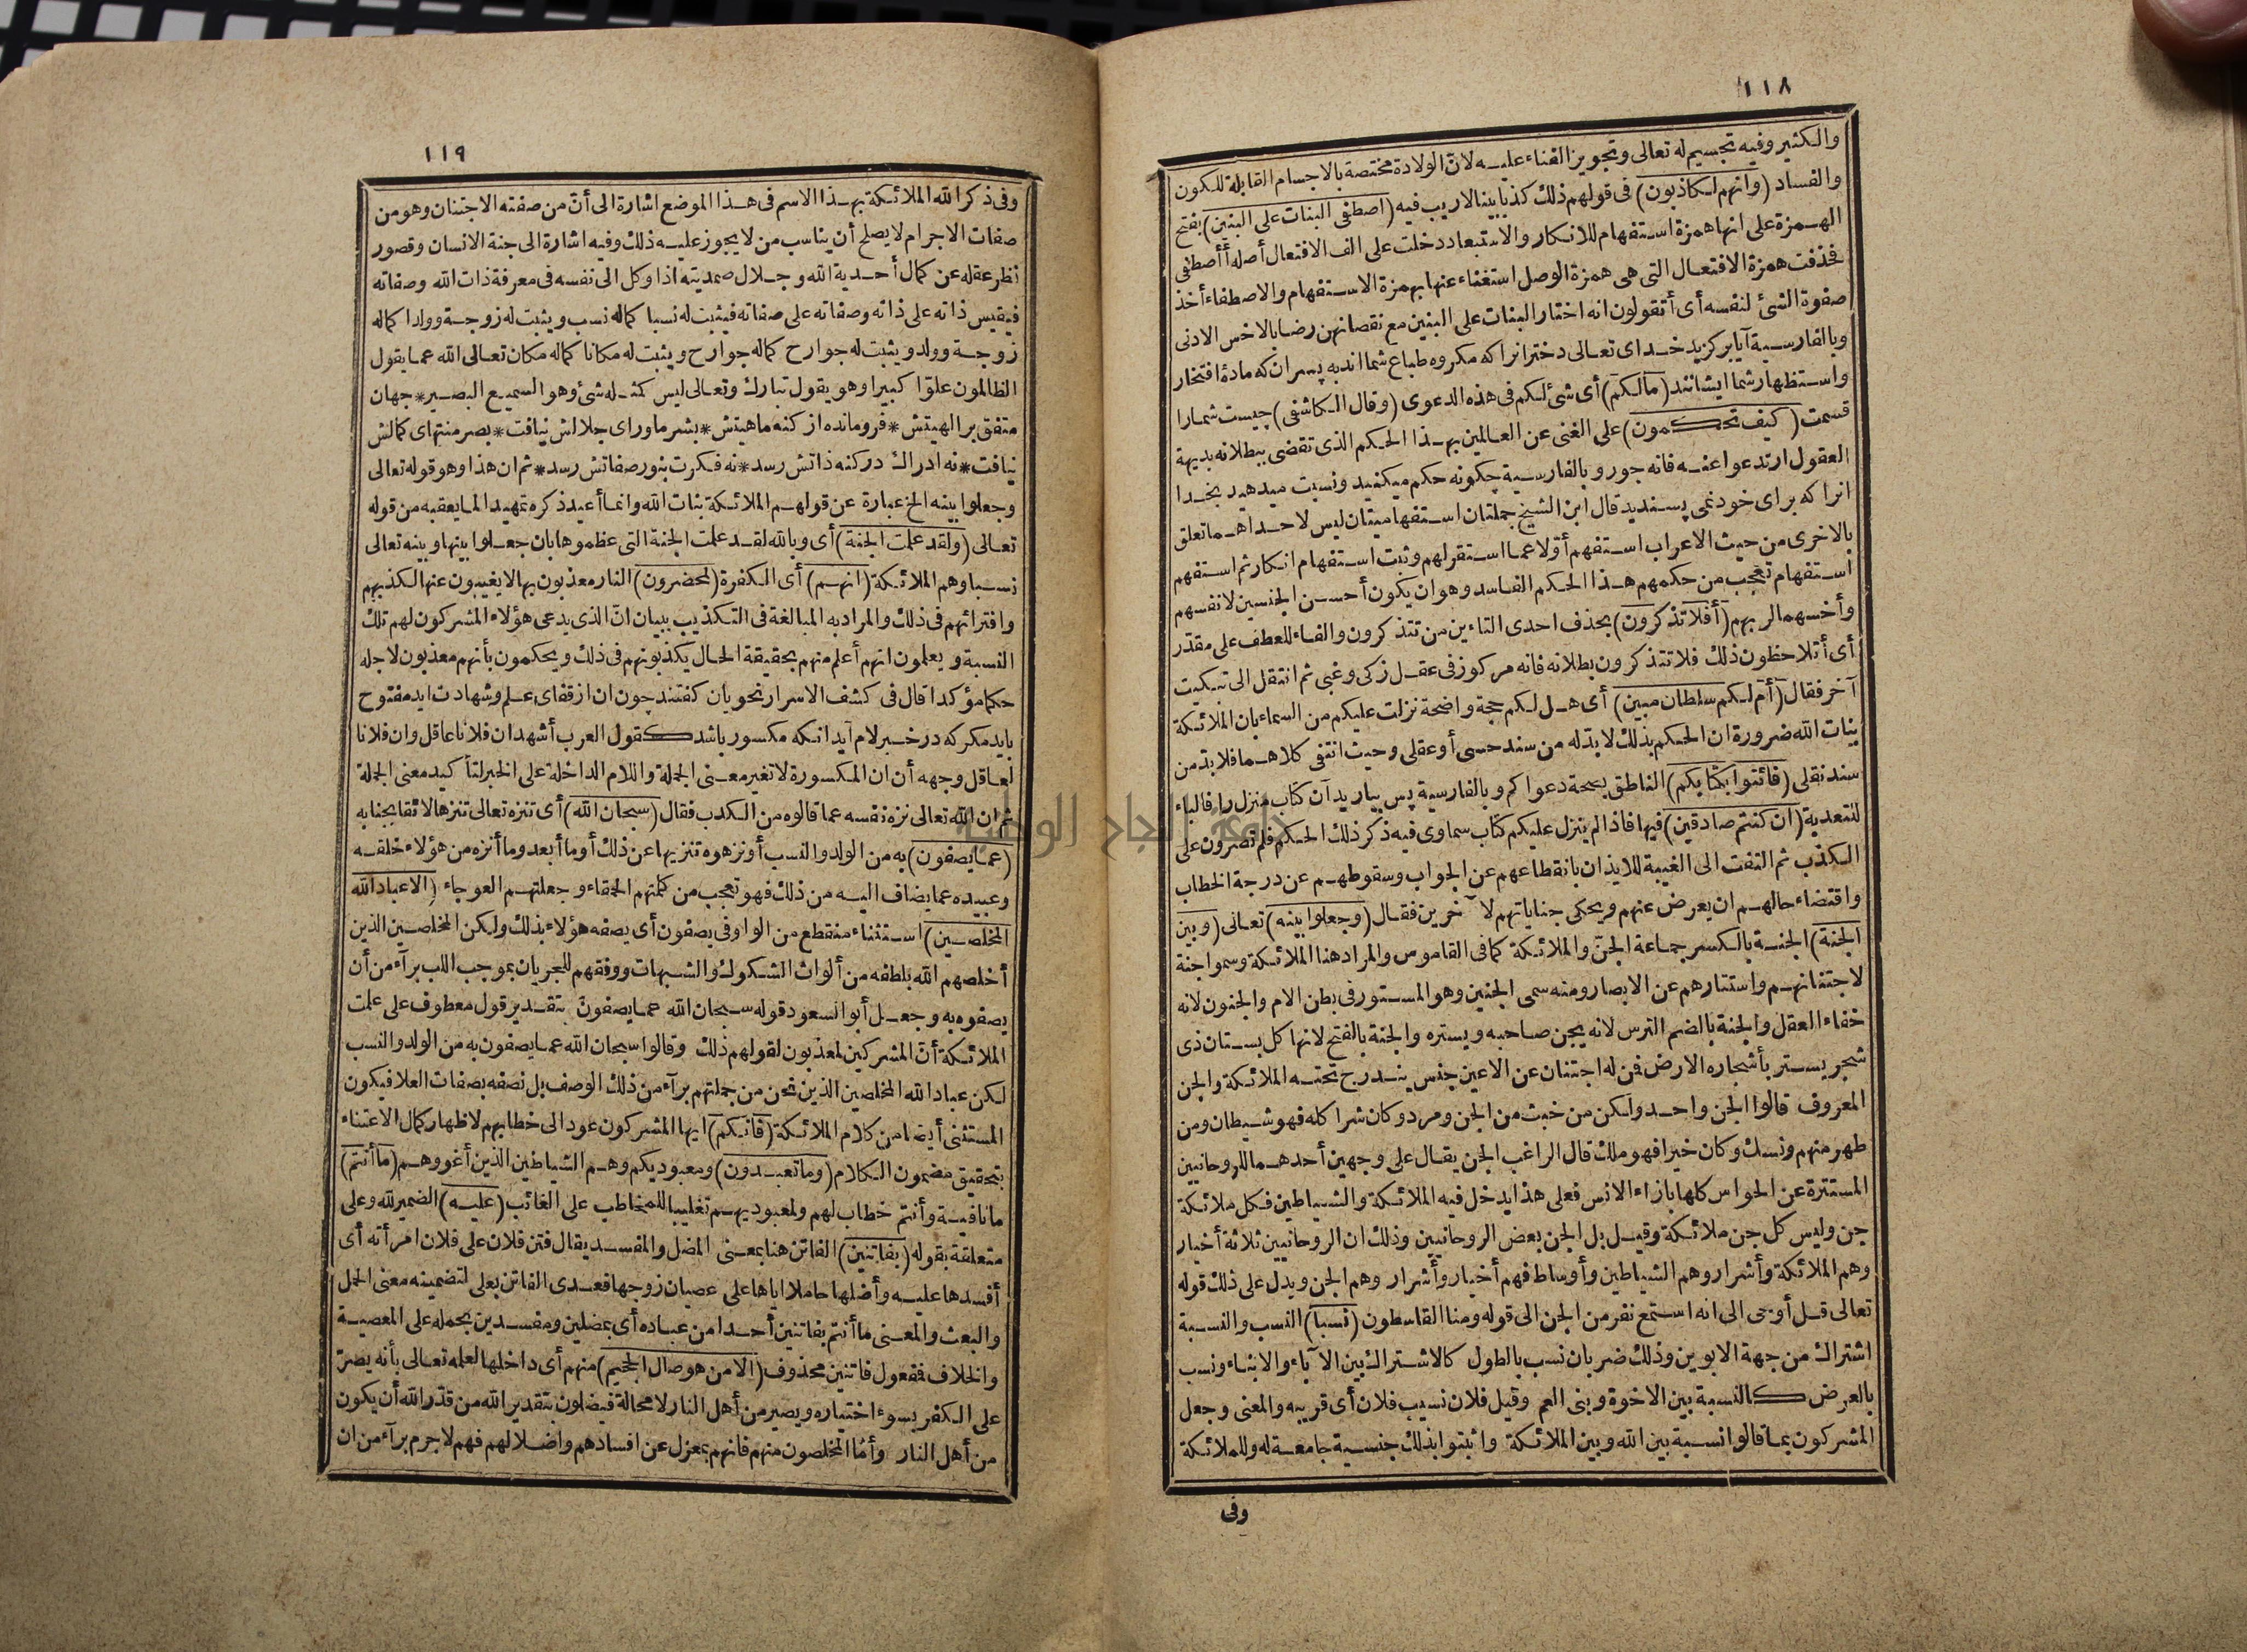 ١١٨
والكثير وفيه تجسيم له تعالى وتجويز الفناء عليه لان الولادة مختصة بالاجسام القابلة للكون
والفساد (وانهم لكاذبون) فى قولهم ذلك كذبا بينا لاريب فيه (اصطفى البنات على البنين) بفتح
الهمزة على انها همزة استفهام للانكار والاستبعاد دخلت على الف الافتعال أصله أأصطفى
فحذفت همزة الافتعال التى هى همزة الوصل استغناء عنها بهمزة الاستفهام والاصطفاء أخذ
صفوة الشئ لنفسه أى أتقولون انه اختار البنات على البنين مع نقصانهن رضا بالاخس الادنى
وبالفارسية آيا بركزيد خداى تعالى دخترانرا كه مكروه طباع شما اند به پسران كه مادهٔ افتخار
واستظهار شما ايشانند (مالكم) أى شئ لكم فى هذه الدعوى (وقال الكاشفى) چيست شمارا
قسمت (كيف تحكمون) على الغنى عن العالمين بهذا الحكم الذى تقضى ببطلانه بديهة
العقول ارتدعوا عنه فانه جور وبالفارسية چكونه حكم ميكنيد ونسبت ميدهيد بخدا
انرا كه براى خود نمى پسنديد قال ابن الشيخ جملتان استفهاميتان ليس لاحداهما تعلق
بالاخرى من حيث الاعراب استفهم أولا عما استقر لهم وثبت استفهام انكار ثم استفهم
استفهام تعجب من حكمهم هذا الحكم الفاسد وهو ان يكون أحسن الجنسين لانفسهم
وأخسهما لربهم (أفلا تذكرون) بحذف احدى التاءين من تتذكرون والفاء للعطف على مقدر
أى أتلاحظون ذلك فلا تتذكرون بطلانه فانه مركوز فى عقل زكى وغبى ثم انتقل الى تبكيت
آخر فقال (أم لكم سلطان مبين) أى هل لكم حجة واضحة نزلت عليكم من السماء بان الملائكة
بنات الله ضرورة ان الحكم بذلك لابد له من سند حسى أو عقلى وحيث انتفى كلاهما فلابد من
سند نقلى (فائتوا بكتابكم) الناطق بصحة دعواكم وبالفارسية پس بياريد آن كتاب منزل را فالباء
للتعدية (ان كنتم صادقين) فيها فاذا لم ينزل عليكم كتاب سماوى فيه ذكر ذلك الحكم فلم تصرون على
الكذب ثم التفت الى الغيبة للايذان بانقطاعهم عن الجواب وسقوطهم عن درجة الخطاب
واقتضاء حالهم ان يعرض عنهم ويحكى جناياتهم لآخرين فقال (وجعلوا بينه) تعالى (وبين
الجنة) الجنة بالكسر جماعة الجن والملائكة كما فى القاموس والمراد هنا الملائكة وسموا جنة
لاجتنانهم واستتارهم عن الابصار ومنه سمى الجنين وهو المستور فى بطن الام والجنون لانه
خفاء العقل والجنة بالضم الترس لانه يجن صاحبه ويستره والجنة بالفتح لانها كل بستان ذى
شجر يستر بأشجاره الارض فمن له اجتنان عن الاعين جنس يندرج تحته الملائكة والجن
المعروف قالوا الجن واحد ولكن من خبث من الجن ومرد وكان شرا كله فهو شيطان ومن
طهر منهم ونسك وكان خيرا فهو ملك قال الراغب الجن يقال على وجهين أحدهما للروحانيين
المستترة عن الحواس كلها بازاء الانس فعلى هذا يدخل فيه الملائكة والشياطين فكل ملائكة
جن وليس كل جن ملائكة وقيل بل الجن بعض الروحانيين وذلك ان الروحانيين ثلاثة أخيار
وهم الملائكة وأشرار وهم الشياطين وأوساط فهم أخيار وأشرار وهم الجن ويدل على ذلك قوله
تعالى قل أوحى الى انه استمع نفر من الجن الى قوله ومنا القاسطون (نسبا) النسب والنسبة
اشتراك من جهة الابوين وذلك ضربان نسب بالطول كالاشتراك بين الآباء والابناء ونسب
بالعرض كالنسبة بين الاخوة وبنى العم وقيل فلان نسيب فلان أى قريبه والمعنى وجعل
المشركون بما قالوا نسبة بين الله وبين الملائكة واثبتوا بذلك جنسية جامعة له وللملائكة
وفى
١١٩
وفى ذكر الله الملائكة بهذا الاسم فى هذا الموضع اشارة الى أن من صفته الاجتنان وهو من
صفات الاجرام لا يصلح أن يناسب من لا يجوز عليه ذلك وفيه اشارة الى جنة الانسان وقصور
نظر عقله عن كمال أحدية الله وجلال صمديته اذا وكل الى نفسه فى معرفة ذات الله وصفاته
فيقيس ذاته على ذاته وصفاته على صفاته فيثبت له نسبا كماله نسب ويثبت له زوجة وولدا كماله
زوجة وولد ويثبت له جوارح كماله جوارح ويثبت له مكانا كماله مكان تعالى الله عما يقول
الظالمون علوّا كبيرا وهو يقول تبارك وتعالى ليس كمثله شئ وهو السميع البصير * جهان
متفق بر الهيتش * فرومانده از كنه ماهيتش * بشر ماوراى جلالش نيافت * بصر منتهاى كمالش
نيافت * نه ادراك در كنه ذاتش رسد * نه فكرت بغور صفاتش رسد * ثم ان هذا وهو قوله تعالى
وجعلوا بينه الخ عبارة عن قولهم الملائكة بنات الله وانما أعيد ذكره تمهيدا لما يعقبه من قوله
تعالى (ولقد علمت الجنة) أى وبالله لقد علمت الجنة التى عظموها بان جعلوا بينها وبينه تعالى
نسبا وهم الملائكة (انهم) أى الكفرة (لمحضرون) النار معذبون بها لا يغيبون عنها لكذبهم
وافترائهم فى ذلك والمراد به المبالغة فى التكذيب ببيان انّ الذى يدعى هؤلاء المشركون لهم تلك
النسبة ويعلمون انهم أعلم منهم بحقيقة الحال يكذبونهم فى ذلك ويحكمون بأنهم معذبون لاجله
حكما مؤكدا قال فى كشف الاسرار نحويان كفتند چون ان از قفاى علم وشهادت ايد مفتوح
بايد مكر كه در خبر لام آيد انكه مكسور باشد كقول العرب أشهد ان فلانا عاقل وان فلانا
لعاقل وجهه أن ان المكسورة لا تغير معنى الجملة واللام الداخلة على الخبر لتأكيد معنى الجملة
ثم ان الله تعالى نزه نفسه عما قالوه من الكذب فقال (سبحان الله) أى تنزه تعالى تنزها لائقا بجنابه
(عما يصفون) به من الولد والنسب أو نزهوه تنزيها عن ذلك أو ما أبعد وما أنزه من هؤلاء خلقه
وعبيده عما يضاف اليه من ذلك فهو تعجب من كلمتهم الحمقاء وجعلتهم العوجاء (الا عباد الله
المخلصين) استثناء منقطع من الواو فى يصفون أى يصفه هؤلاء بذلك ولكن المخلصين الذين
أخلصهم الله بلطفه من ألواث الشكوك والشبهات ووفقهم للجريان بموجب اللب برآء من أن
يصفوه به وجعل أبو السعود قوله سبحان الله عما يصفون بتقدير قول معطوف على علمت
الملائكة أنّ المشركين لمعذبون لقولهم ذلك وقالوا سبحان الله عما يصفون به من الولد والنسب
لكن عباد الله المخلصين الذين نحن من جملتهم برآء من ذلك الوصف بل نصفه بصفات العلا فيكون
المستثنى أيضا من كلام الملائكة (فانكم) ايها المشركون عود الى خطابهم لاظهار كمال الاعتناء
بتحقيق مضمون الكلام (وما تعبدون) ومعبوديكم وهم الشياطين الذين أغووهم (ما أنتم)
ما نافية وأنتم خطاب لهم ولمعبوديهم تغليبا للمخاطب على الغائب (عليه) الضمير لله وعلى
متعلقة بقوله (بفاتنين) الفاتن هنا بمعنى المضل والمفسد يقال فتن فلان على فلان امرأته أى
أفسدها عليه وأضلها حاملا اياها على عصيان زوجها فعدى الفاتن بعلى لتضمينه معنى الحمل
والبعث والمعنى ما أنتم بفاتنين أحدا من عباده أى بمضلين ومفسدين بحمله على المعصية
والخلاف فمفعول فاتنين محذوف (الا من هو صال الجحيم) منهم أى داخلها لعلمه تعالى بأنه يصرّ
على الكفر بسوء اختياره ويصير من أهل النار لا محالة فيضلون بتقدير الله من قدّر الله أن يكون
من أهل النار وأمّا المخلصون منهم فانهم بمعزل عن افسادهم واضلالهم فهم لا جرم برآء من ان
جامعة النجاح الوطنية